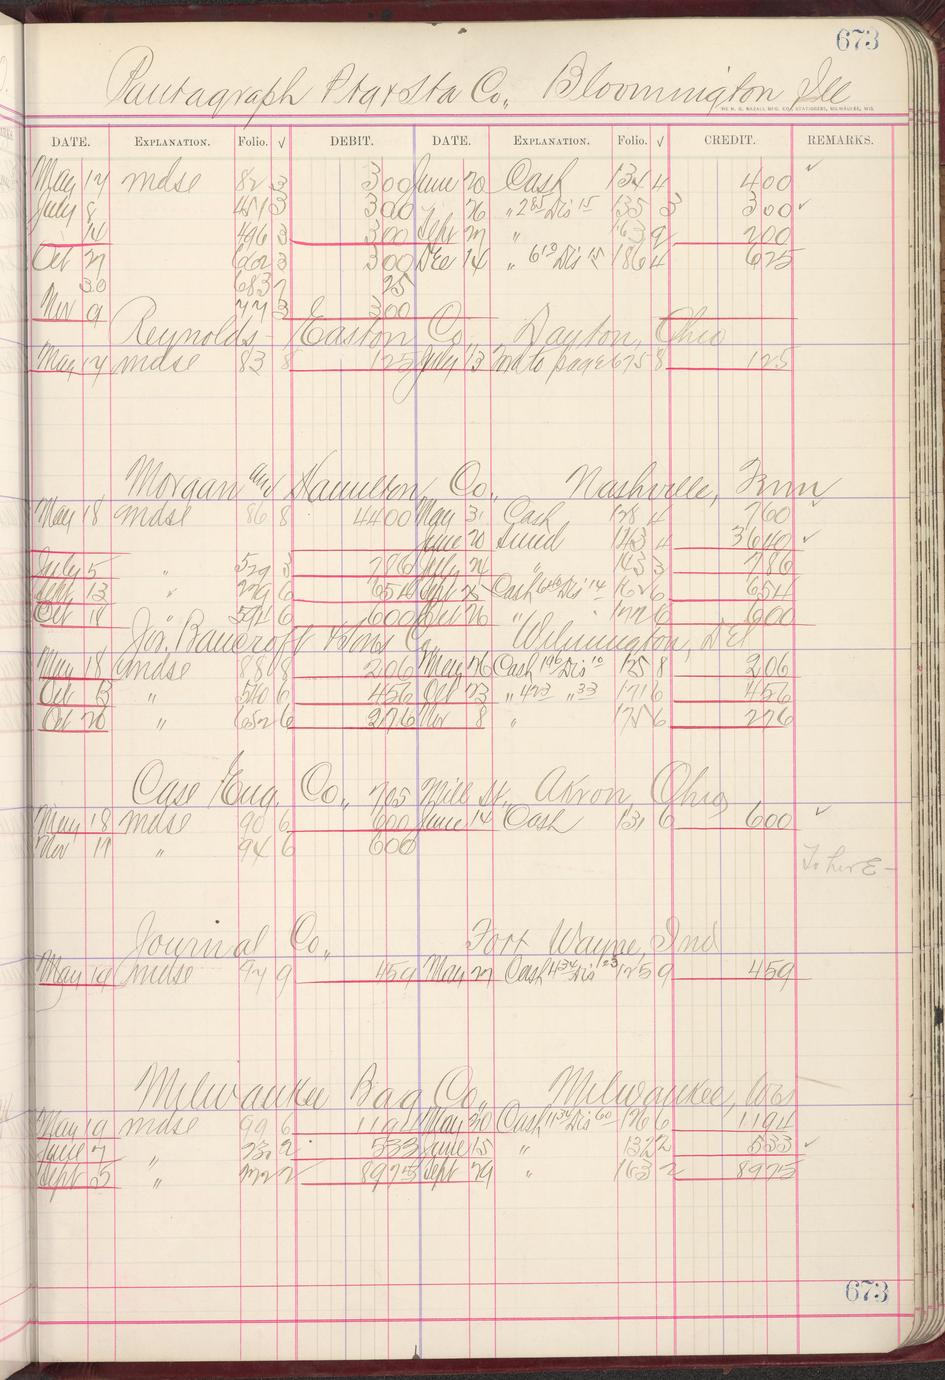 673
Pantagraph Ptg & Sta Co., Bloomington Ill
DATE. EXPLANATION. Folio. √ DEBIT. DATE. EXPLANATION. Folio. √ CREDIT. REMARKS.
May 17 mdse 82 3 300 June 20 Cash 134 4 400 ✓
July 8 451 3 300 " 26 " 285 Dis 15 135 3 300 ✓
" 14 496 3 300 Sept 27 " 163 9 200
Oct 27 662 3 300 Dec 14 " 610 Dis 15 186 4 625
30 683 2 25
Nov 9 773 300
Reynolds - Easton Co Dayton, Ohio
May 17 mdse 83 8 125 July 13 to page 675 8 125
Morgan and Hamilton Co., Nashville, Tenn
May 18 mdse 86 8 4400 May 31 Cash 128 4 760 ✓
June 20 Sund 143 4 3640 ✓
July 5 " 529 3 786 July 24 " 145 3 786
Sept 13 " 279 6 654 Sept 25 Cash 640 Dis 14 162 6 654
Oct 11 " 594 6 600 Oct 26 " 172 6 600
Jos. Bancroft & Sons Co., Wilmington, Del
May 18 mdse 88 8 206 May 26 Cash 196 Dis 10 125 8 206
Oct 3 " 540 6 456 Oct 23 " 423 " 33 171 6 456
Oct 20 " 652 6 276 Nov 8 " 175 6 276
Case Eng. Co., 705 Mill St., Akron Ohio
May 18 mdse 90 6 600 June 14 Cash 131 6 600 ✓
Nov 17 " 94 6 600
Journal Co., Fort Wayne, Ind
May 19 mdse 97 9 459 May 27 Cash 434 Dis 23 125 9 459
Milwaukee Bag Co., Milwaukee, Wis
May 19 mdse 99 6 1194 May 30 Cash 1134 Dis 60 126 6 1194
June 7 " 232 2 533 June 15 " 132 2 533 ✓
Sept 5 " 222 2 8975 Sept 29 " 163 2 8975
673